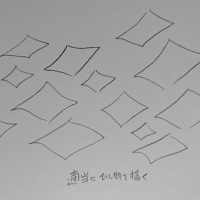 適当にひし形を描く